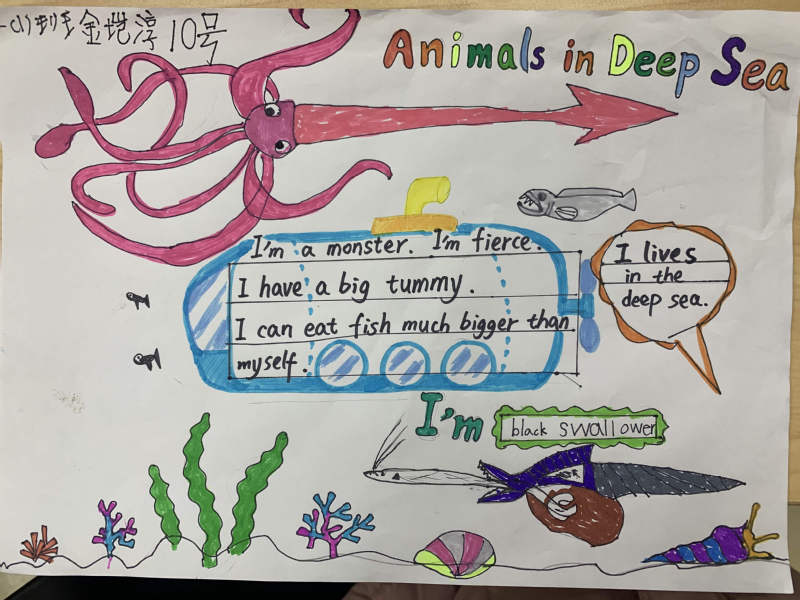 金地淳 10号
Animals in Deep Sea
I'm a monster. I'm fierce.
I have a big tummy.
I can eat fish much bigger than
myself.
I lives
in the
deep sea.
I'm black swallower